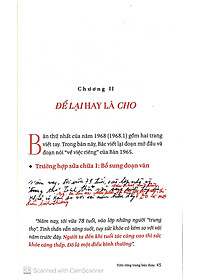 Chương II
ĐỂ LẠI HAY LÀ CHO
Bản thứ nhất của năm 1968 (1968.1) gồm hai trang
viết tay. Trong bản này, Bác viết lại đoạn mở đầu và
đoạn nói "về việc riêng" của Bản 1965.
Trường hợp sửa chữa 1: Bổ sung đoạn văn
Năm nay, tôi vừa 78 tuổi, vào lớp những người
"Năm nay, tôi vừa 78 tuổi, vào lớp những người "trung
thọ". Tinh thần vẫn sáng suốt, tuy sức khỏe có kém so với vài
năm trước đây. Người ta đến khi tuổi tác càng cao thì sức
khỏe càng thấp. Đó là một điều bình thường".
Trên từng trang bản thảo 45
Scanned with CamScanner